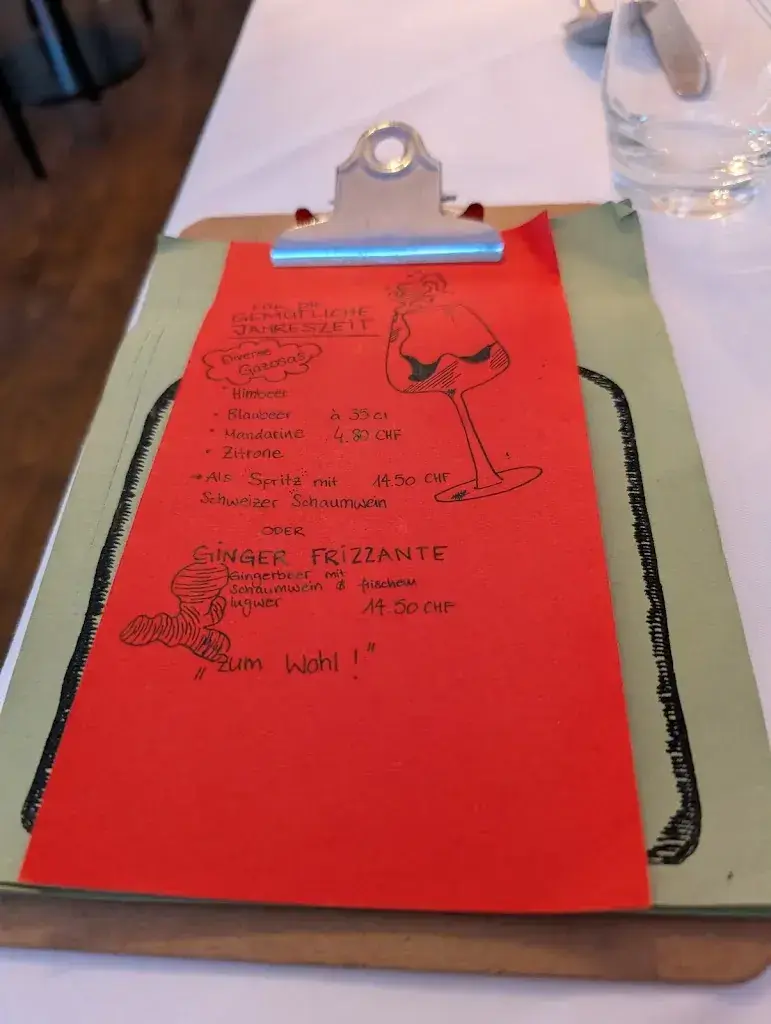 FÜR DIE
GEMÜTLICHE
JAHRESZEIT
Diverse
Gazosas
• Himbeer
• Blaubeer à 35cl
• Mandarine 4.80 CHF
• Zitrone
→ Als Spritz mit 14.50 CHF
Schweizer Schaumwein
ODER
GINGER FRIZZANTE
Gingerbeer mit
Schaumwein & frischem
Ingwer 14.50 CHF
„zum Wohl!"